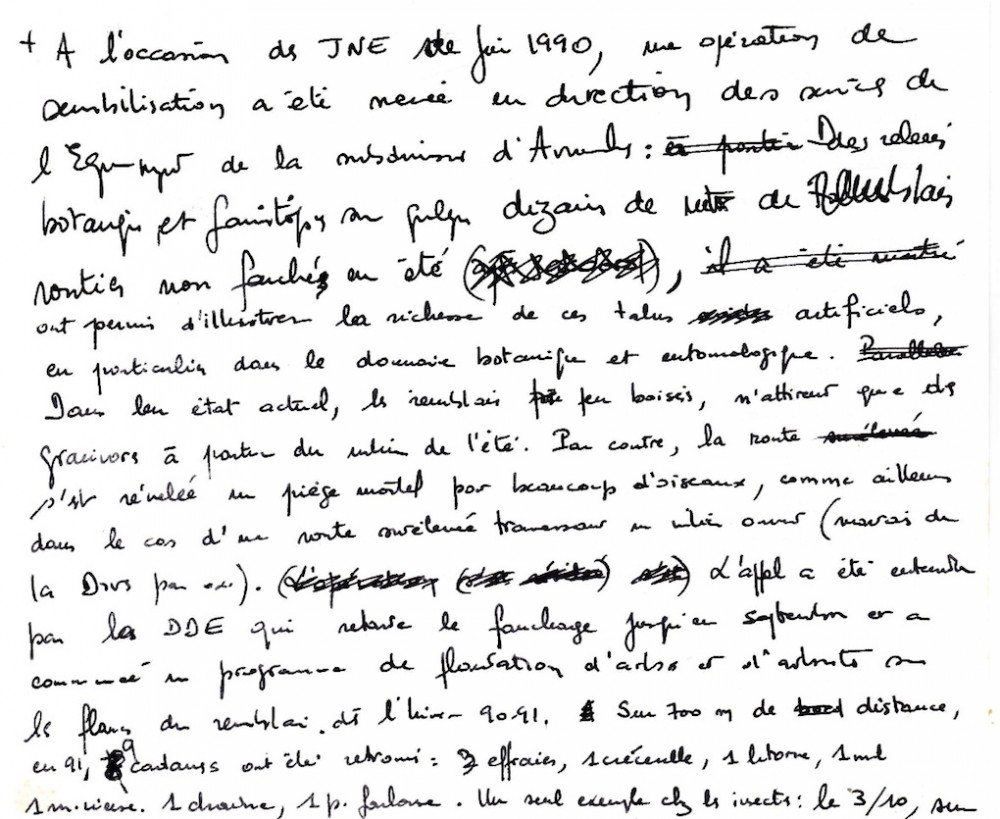 + A l'occasion des JNE de Juin 1990, une opération de
sensibilisation a été menée en direction des services de
l'Equipement de la subdivision d' : Des relevés
botaniques et sur quelques dizaines de de Remblais
routiers non fauchés en été ( ),
ont permis d'illustrer la richesse de ces talus artificiels,
en particulier dans le domaine botanique et entomologique.
Dans leur état actuel, les remblais peu boisés, n'attirent que des
granivores à partir du milieu de l'été. Par contre, la route
s'est révélée un piège mortel pour beaucoup d'oiseaux, comme ailleurs
dans le cas d'une route surélevée traversant un milieu ouvert (marais de
la Dives par ex.). L'appel a été entendu
par la DDE qui retarde le fauchage jusqu'en septembre et a
commencé un programme de plantation d'arbres et d'arbustes sur
les flancs du remblai dès l'hiver 90-91. Sur 700 m de distance,
en 91, 9 cadavres ont été retrouvés : 3 effraies, 1 crécerelle, 1 litorne, 1 merle
1 m. rieuse. 1 draine, 1 p. farlouse. Un seul exemple chez les insectes : le 3/10, sur